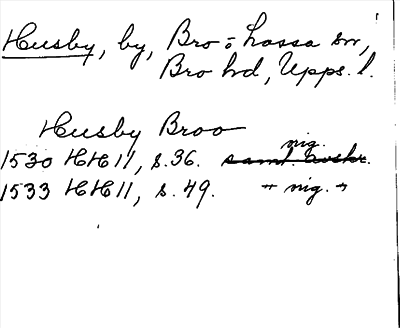 Husby, by, Bro o Lossa sn,
Bro hd, Upps. l.
Husby Broo
1530 HH 11, s. 36. nig.
1533 HH 11, s. 49. " nig. "